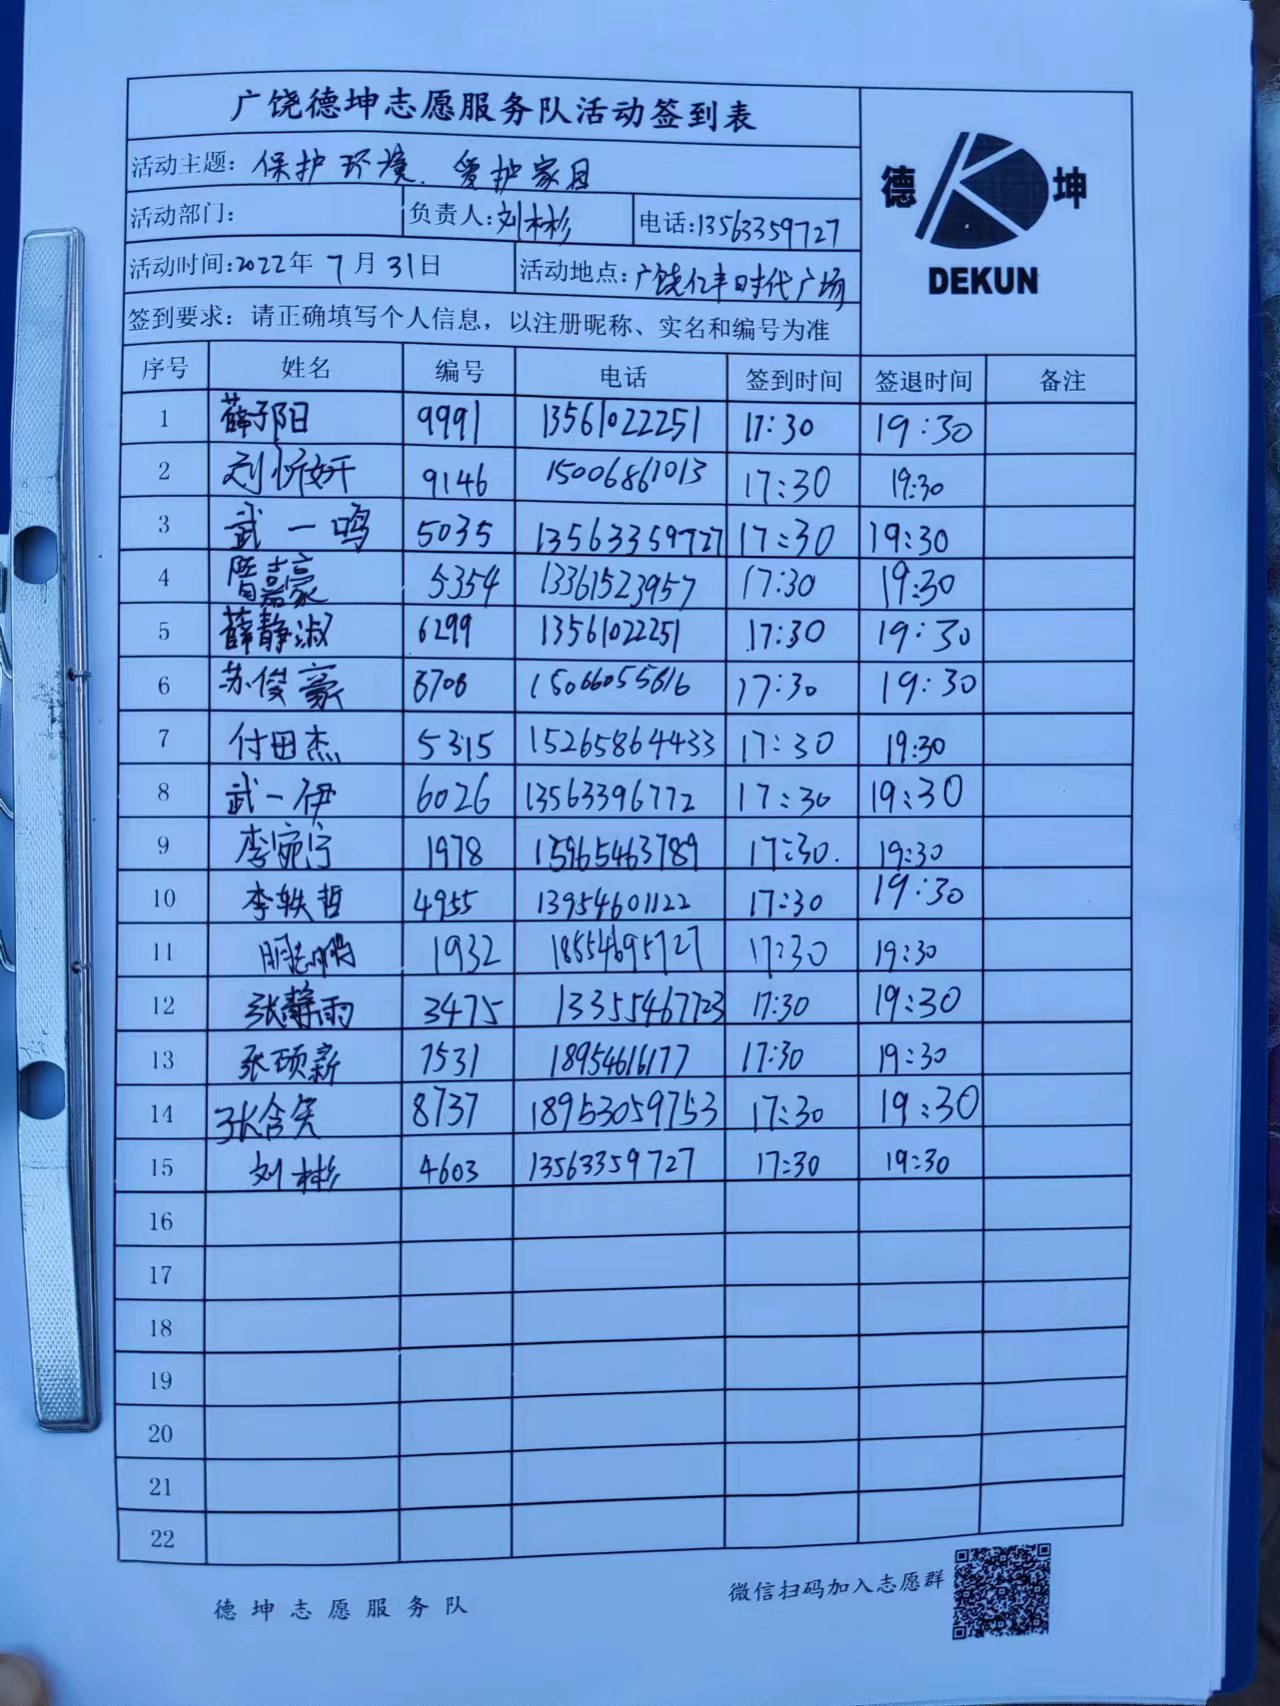 广饶德坤志愿服务队活动签到表
活动主题: 保护环境. 爱护家园
德 坤
DEKUN
活动部门: 负责人:刘彬彬 电话:13563359727
活动时间:2022年 7月31日 活动地点:广饶亿丰时代广场
签到要求: 请正确填写个人信息, 以注册昵称、实名和编号为准
序号 姓名 编号 电话 签到时间 签退时间 备注
1 薛子阳 9991 13561022251 17:30 19:30
2 刘忻妍 9146 15006861013 17:30 19:30
3 武一鸣 5035 13563359727 17:30 19:30
4 隋嘉豪 5354 13361523957 17:30 19:30
5 薛静淑 6299 13561022251 17:30 19:30
6 苏俊豪 17:30 19:30
7 付田杰 5315 15265864433 17:30 19:30
8 武一伊 6026 13563396772 17:30 19:30
9 李宛宁 1978 15965463789 17:30. 19:30
10 李轶哲 4955 13954601122 17:30 19:30
11 1932 18554695727 17:30 19:30
12 张静雨 3475 13355467723 17:30 19:30
13 张顼新 7531 18954616177 17:30 19:30
14 张含 8737 18953059753 17:30 19:30
15 刘彬 4603 13563359727 17:30 19:30
16
17
18
19
20
21
22
德坤志愿服务队
微信扫码加入志愿群